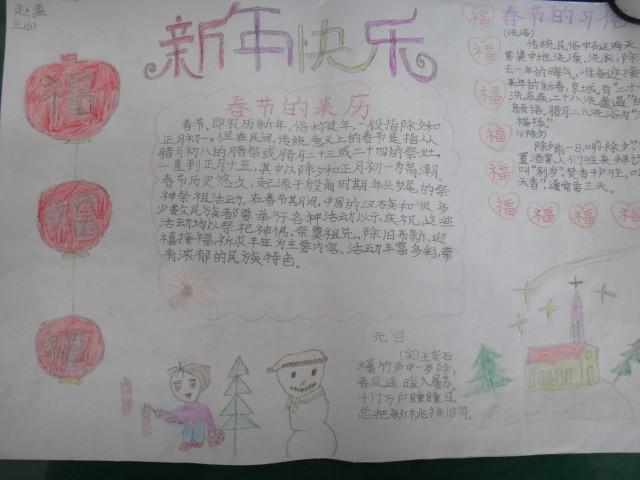 赵磊
三(6)
福
福
福
新年快乐
春节的来历
春节,即农历新年,俗称过年,一般指除夕和
正月初一。但在民间,传统意义上的春节是指从
腊月初八的腊祭或腊月二十三或二十四的祭灶,
一直到正月十五,其中以除夕和正月初一为高潮。
春节历史悠久,起源于殷商时期年头岁尾的祭
神祭祖活动。在春节期间,中国的汉族和很多
少数民族都要举行各种活动以示庆祝。这些
活动均以祭祀神佛、祭奠祖先、除旧布新、迎
禧接福、祈求丰年为主要内容。活动丰富多彩,带
有浓郁的民族特色。
元日
(宋)王安石
爆竹声中一岁除,
春风送暖入屠苏。
千门万户曈曈日,
总把新桃换旧符。
春节的习俗
(洗浴)
传统民俗中在这两天
要集中地洗澡、洗衣,除
去一年的晦气,准备迎接
来年的新春,京城有"二十
七洗疚疾,二十八洗邋遢"的
谚语。腊月二元洗浴为"
福禄"。
(小除夕)
除夕前一日,叫"除夕",
置酒宴,人们往来拜访
叫"别岁"。焚香于户外,叫
天香",通常要三天。
福
福
福
福
福
福
福
福